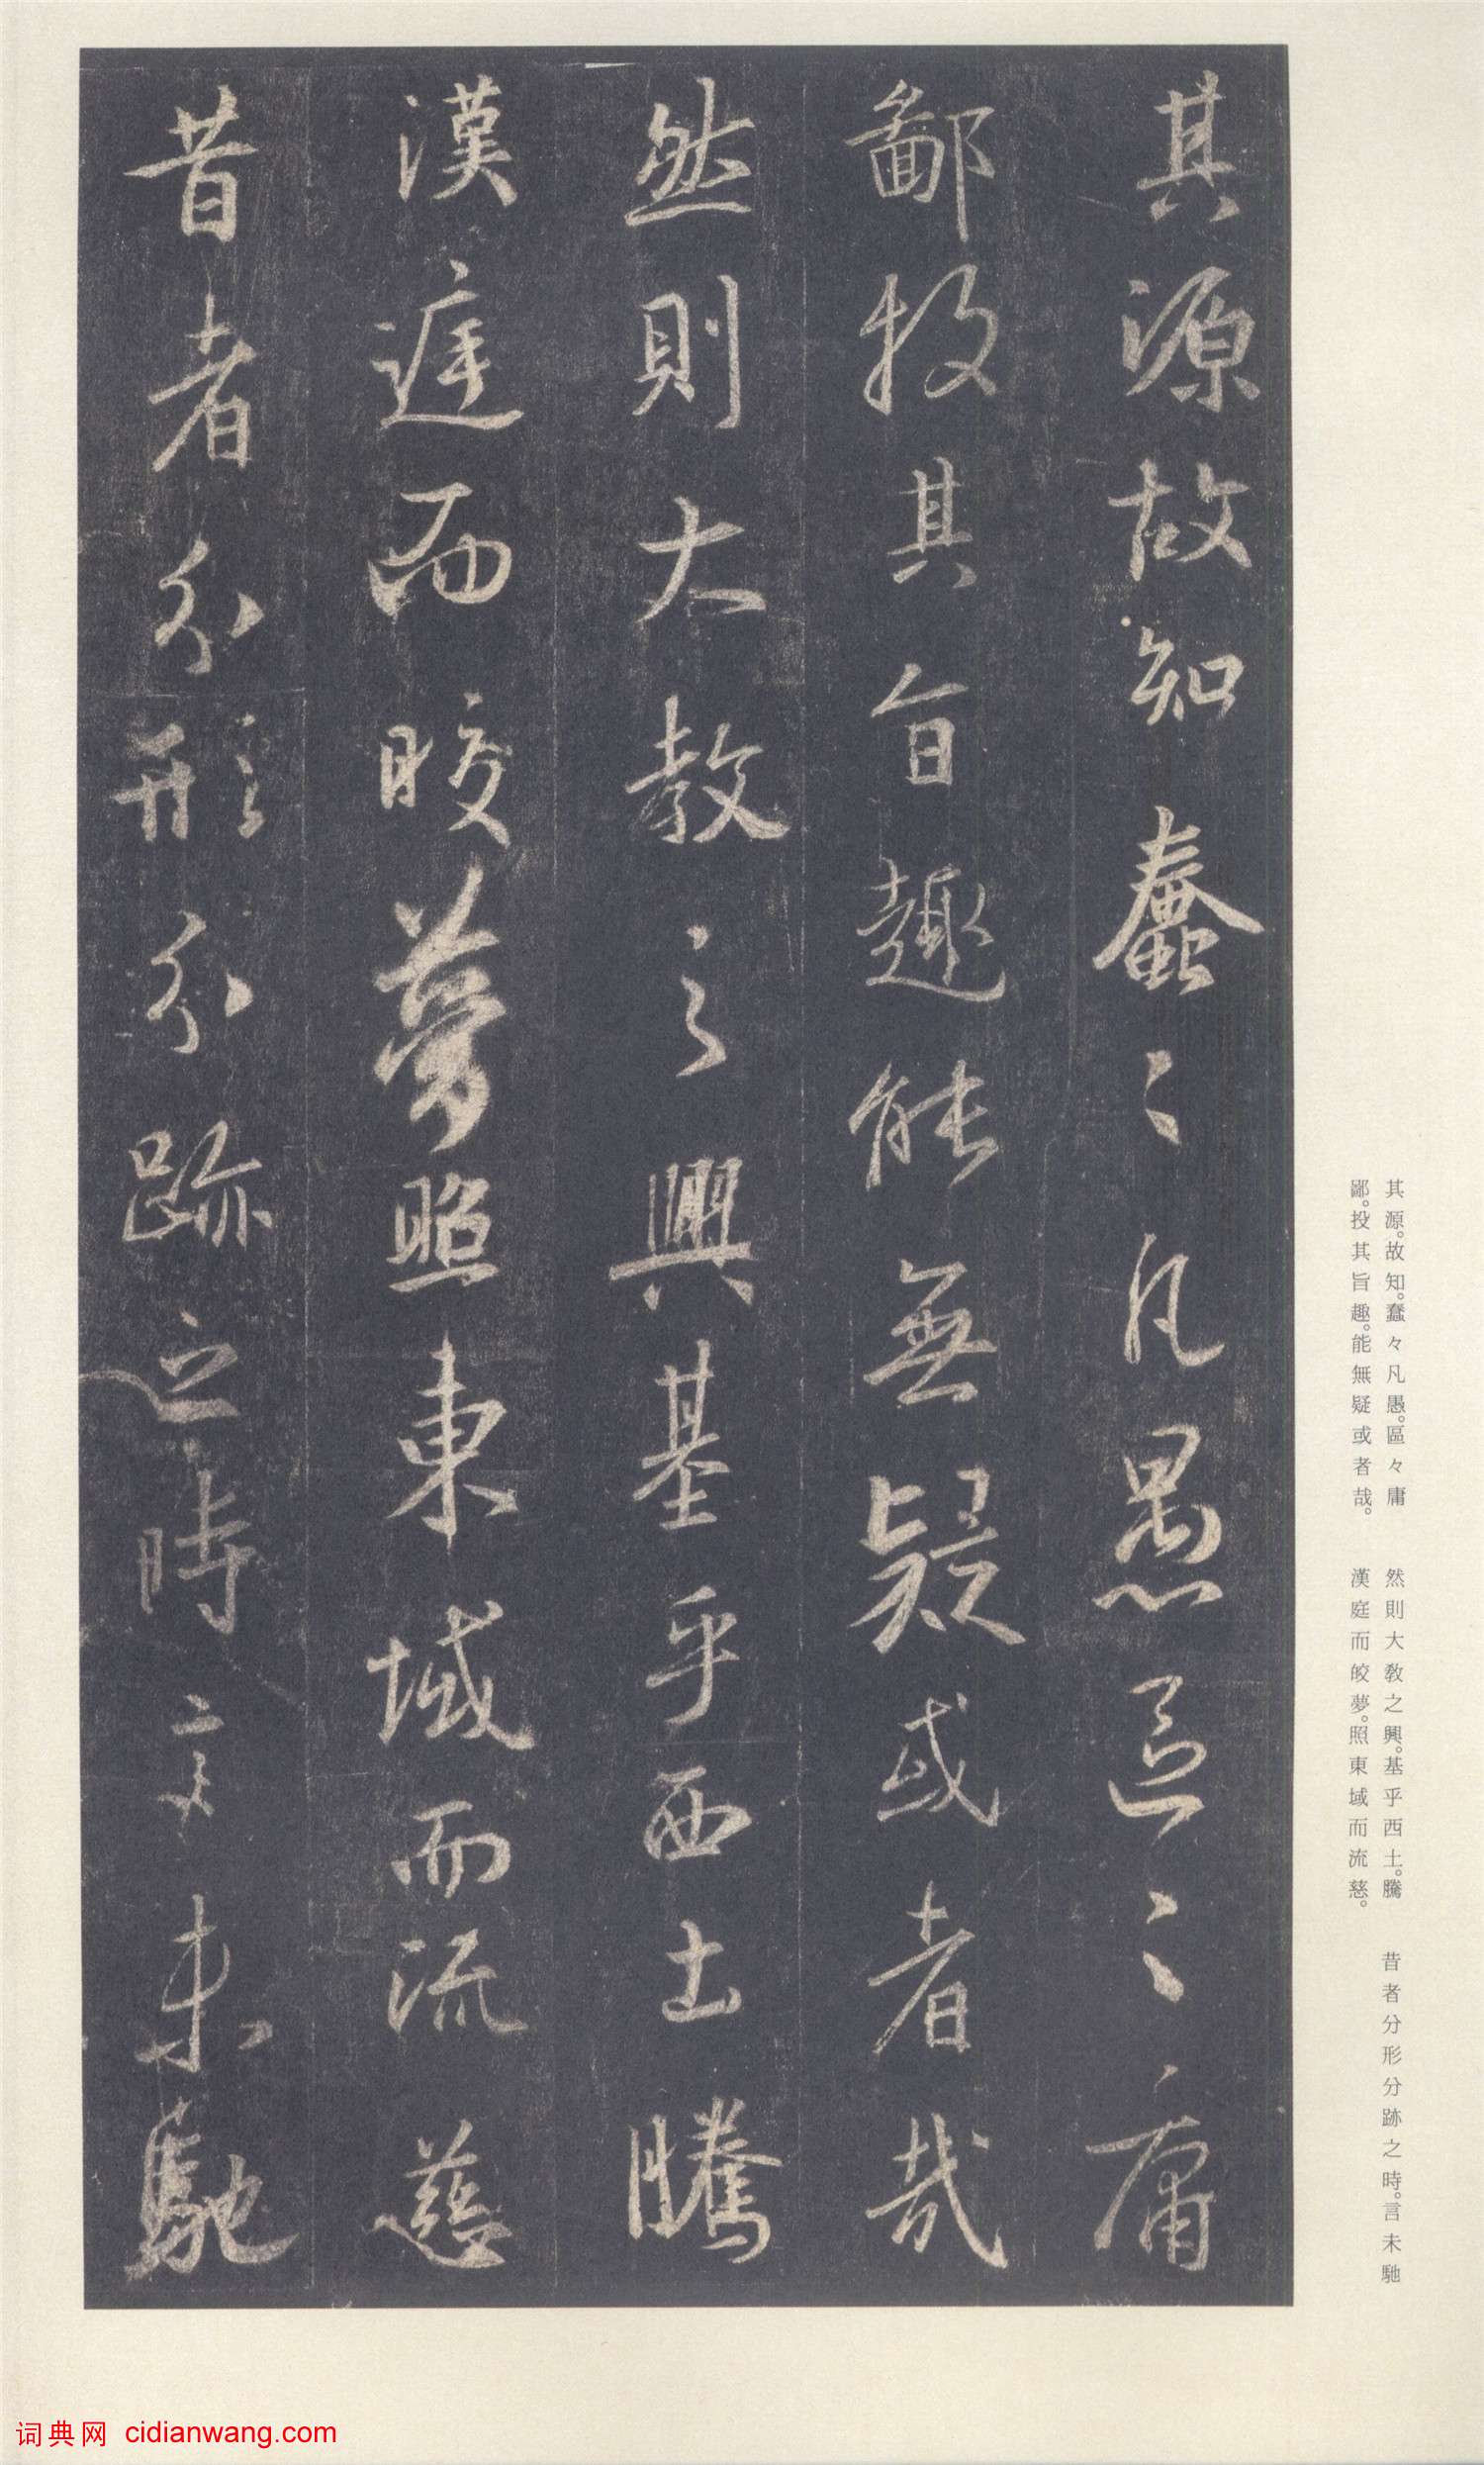 其源故知蠢々凡愚區々庸
鄙投其旨趣能無疑或者哉
然則大教之興基乎西土騰
漢庭而皎夢照東域而流慈
昔者分形分跡之時言未馳
其源。故知。蠢々凡愚。區々庸
鄙。投其旨趣。能無疑或者哉。
然則大教之興。基乎西土。騰
漢庭而皎夢。照東域而流慈。
昔者分形分跡之時。言未馳
词典网 cidianwang.com